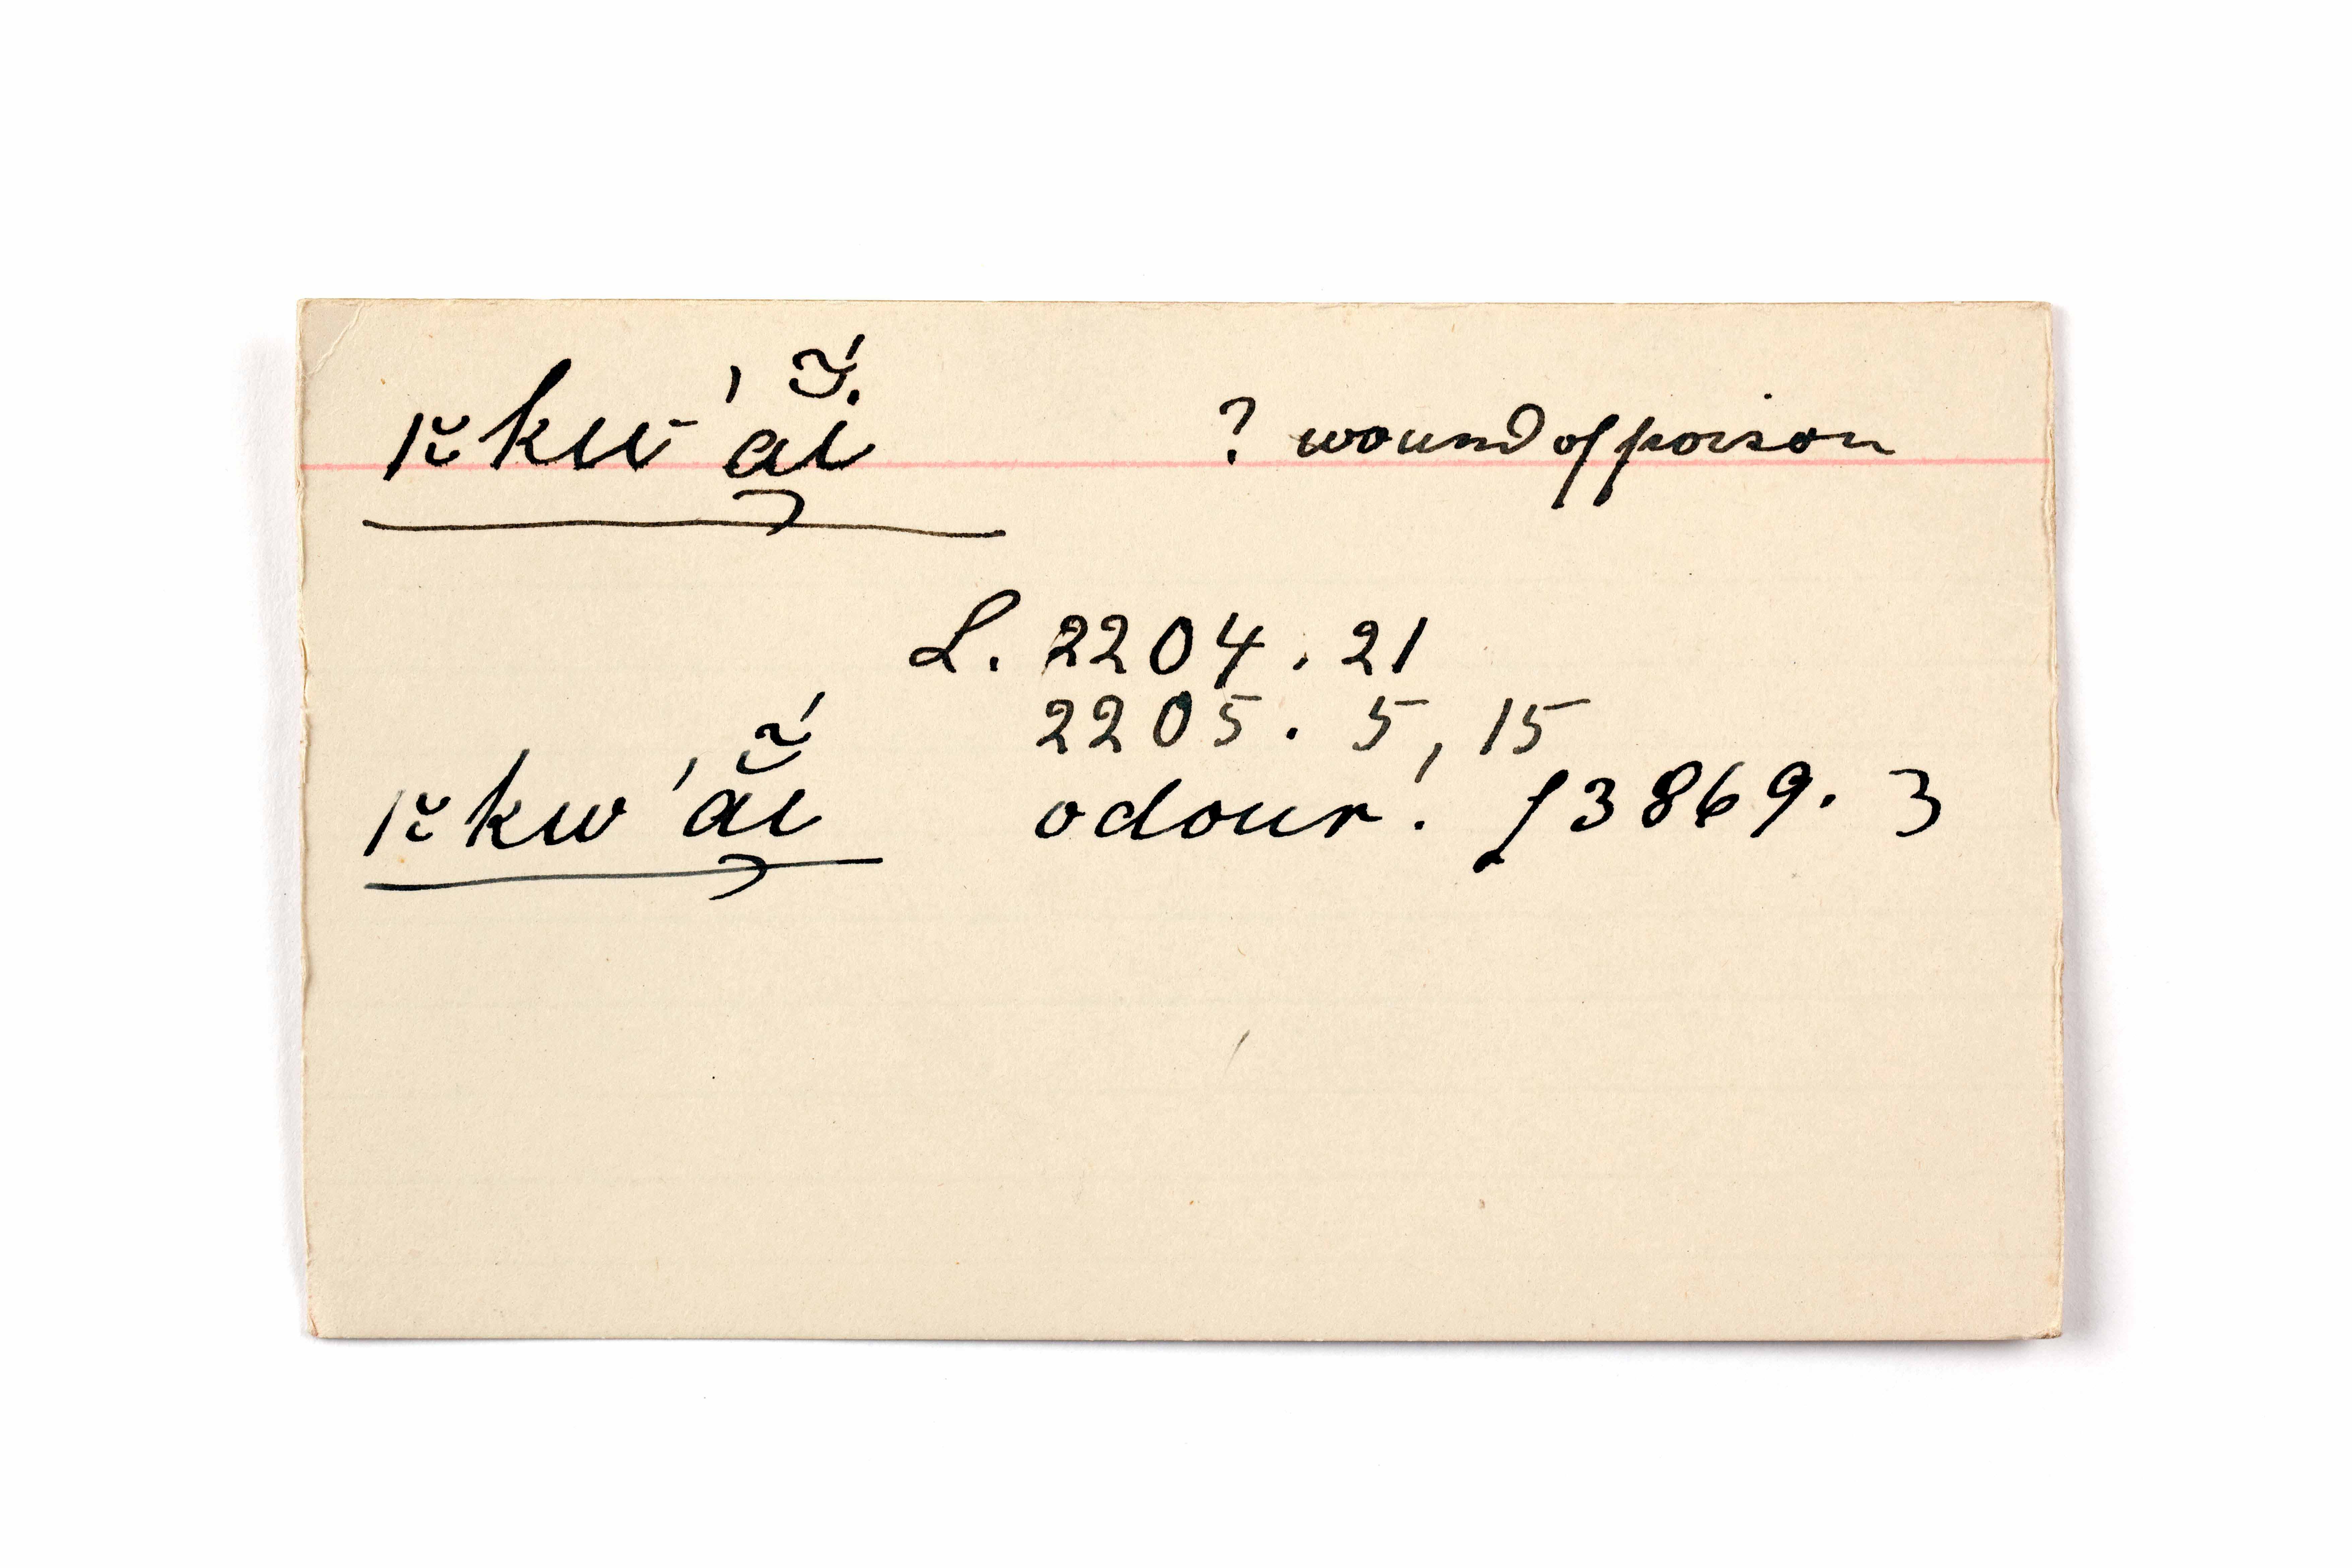 |ῐkw'ãi ? wound of poison
L. 2204. 21
2205. 5, 15
|ῐkw'ãi odour! ʃ3869. 3